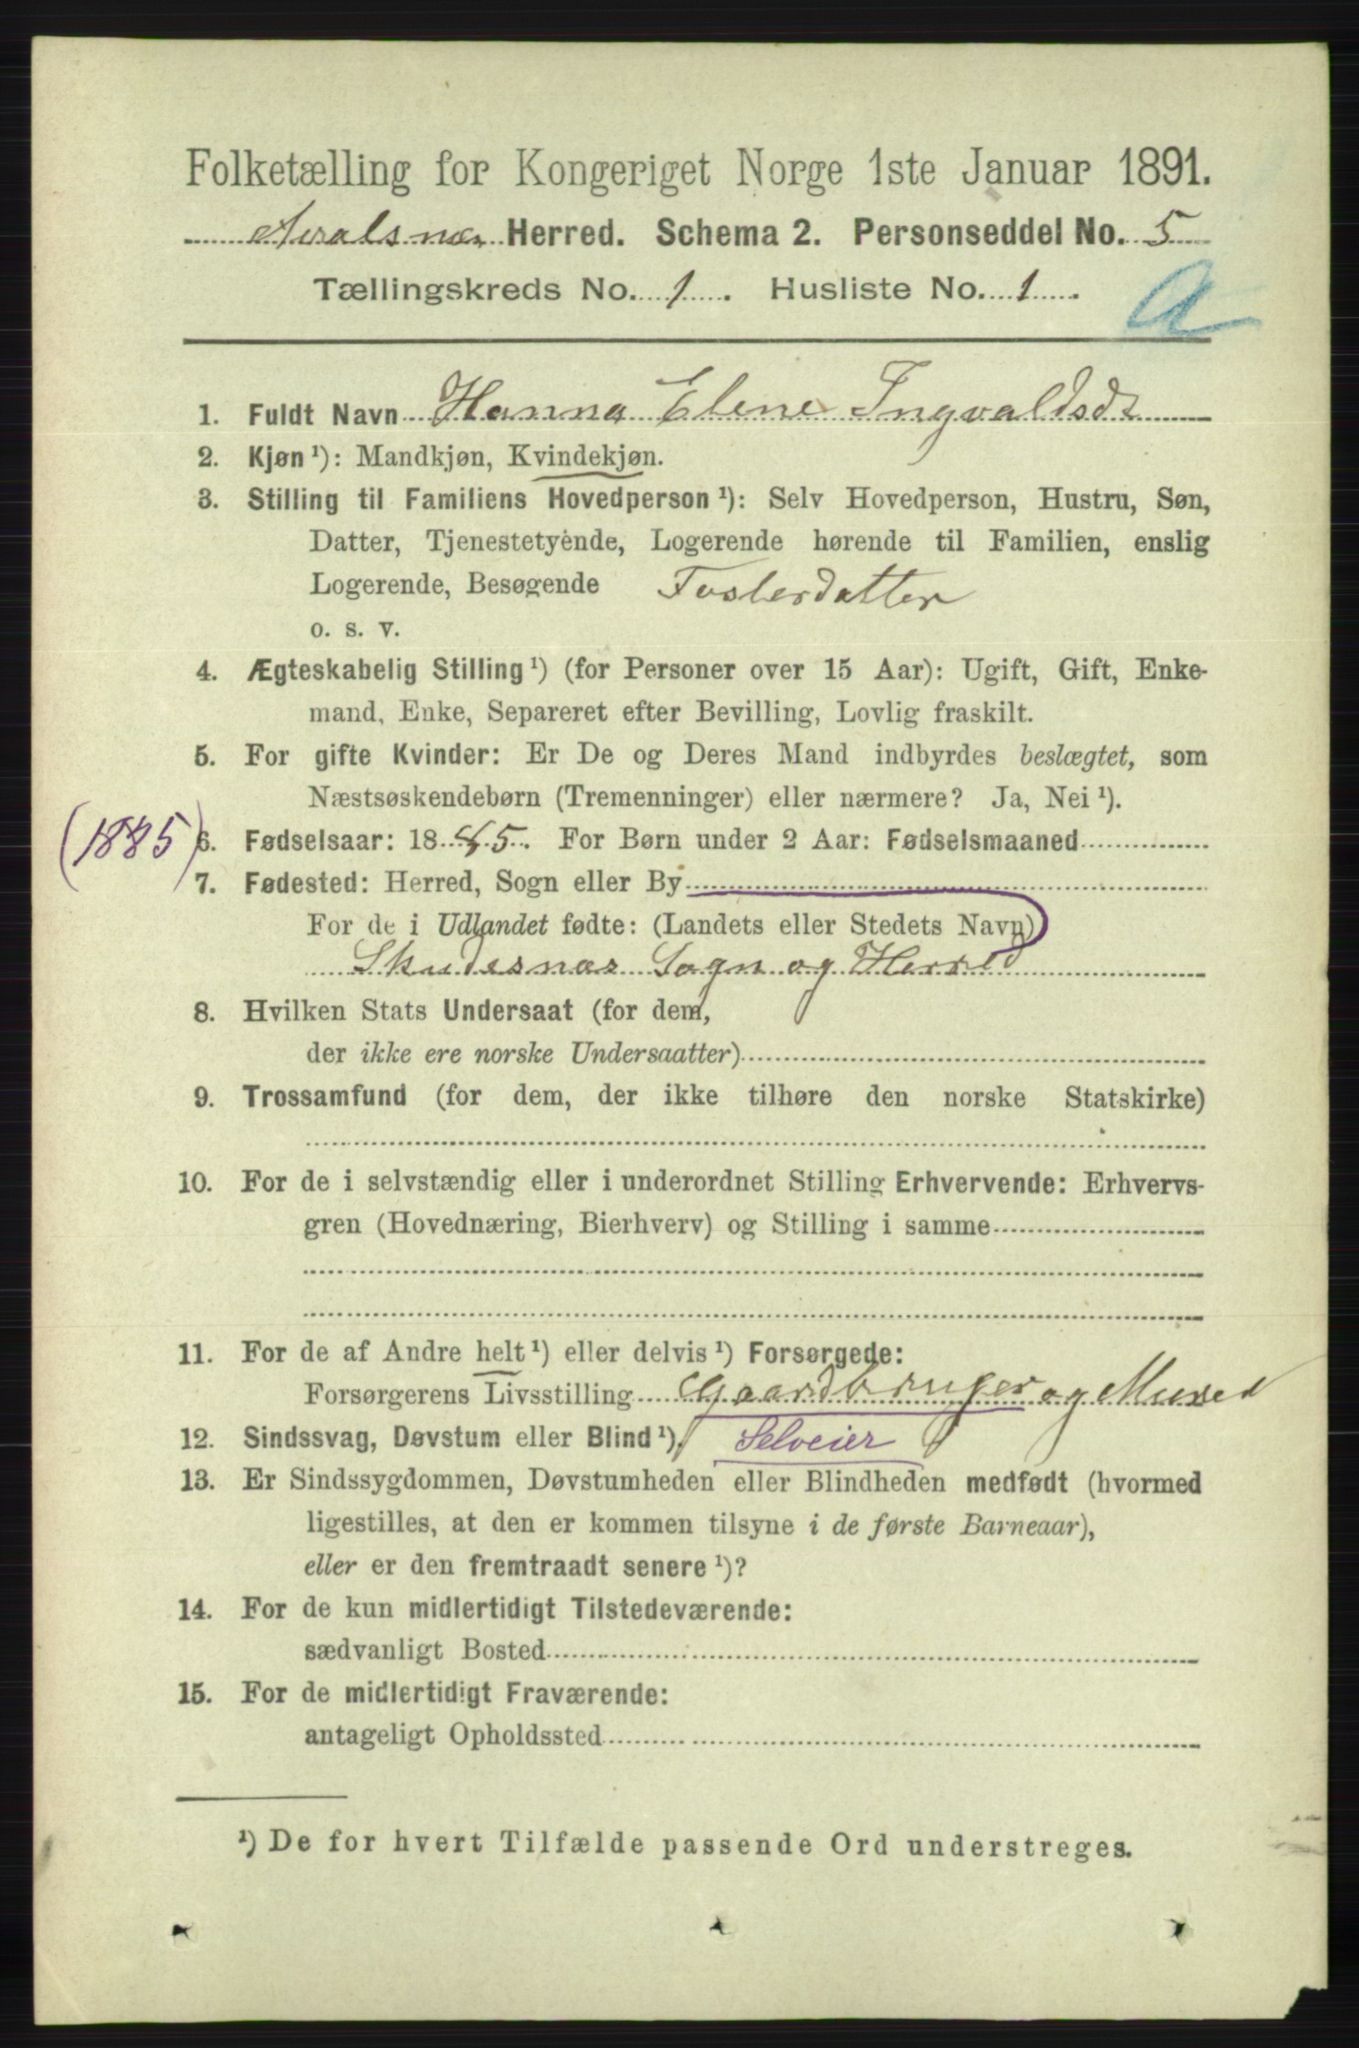 Folketælling for Kongeriget Norge 1ste Januar 1891.
Avalsnæs Herred. Schema 2. Personseddel No. 5
Tællingskreds No. 1. Husliste No. 1.
A
1. Fuldt Navn Hanna Elene Ingvaldsdt
2. Kjøn ¹): Mandkjøn, Kvindekjøn.
3. Stilling til Familiens Hovedperson ¹): Selv Hovedperson, Hustru, Søn,
Datter, Tjenestetyende, Logerende hørende til Familien, enslig
Logerende, Besøgende Fosterdatter
o. s. v.
4. Ægteskabelig Stilling ¹) (for Personer over 15 Aar): Ugift, Gift, Enke-
mand, Enke, Separeret efter Bevilling, Lovlig fraskilt.
5. For gifte Kvinder: Er De og Deres Mand indbyrdes beslægtet, som
Næstsøskendebørn (Tremenninger) eller nærmere? Ja, Nei ¹).
(1885) 6. Fødselsaar: 1885. For Børn under 2 Aar: Fødselsmaaned
7. Fødested: Herred, Sogn eller By
For de i Udlandet fødte: (Landets eller Stedets Navn)
Skudesnæs Sogn og Herred
8. Hvilken Stats Undersaat (for dem,
der ikke ere norske Undersaatter)
9. Trossamfund (for dem, der ikke tilhøre den norske Statskirke)
10. For de i selvstændig eller i underordnet Stilling Erhvervende: Erhvervs-
gren (Hovednæring, Bierhverv) og Stilling i samme
11. For de af Andre helt ¹) eller delvis ¹) Forsørgede:
Forsørgerens Livsstilling Gaardbruger og
12. Sindssvag, Døvstum eller Blind ¹). Selveier
13. Er Sindssygdommen, Døvstumheden eller Blindheden medfødt (hvormed
ligestilles, at den er kommen tilsyne i de første Barneaar),
eller er den fremtraadt senere ¹)?
14. For de kun midlertidigt Tilstedeværende:
sædvanligt Bosted
15. For de midlertidigt Fraværende:
antageligt Opholdssted
¹) De for hvert Tilfælde passende Ord understreges.